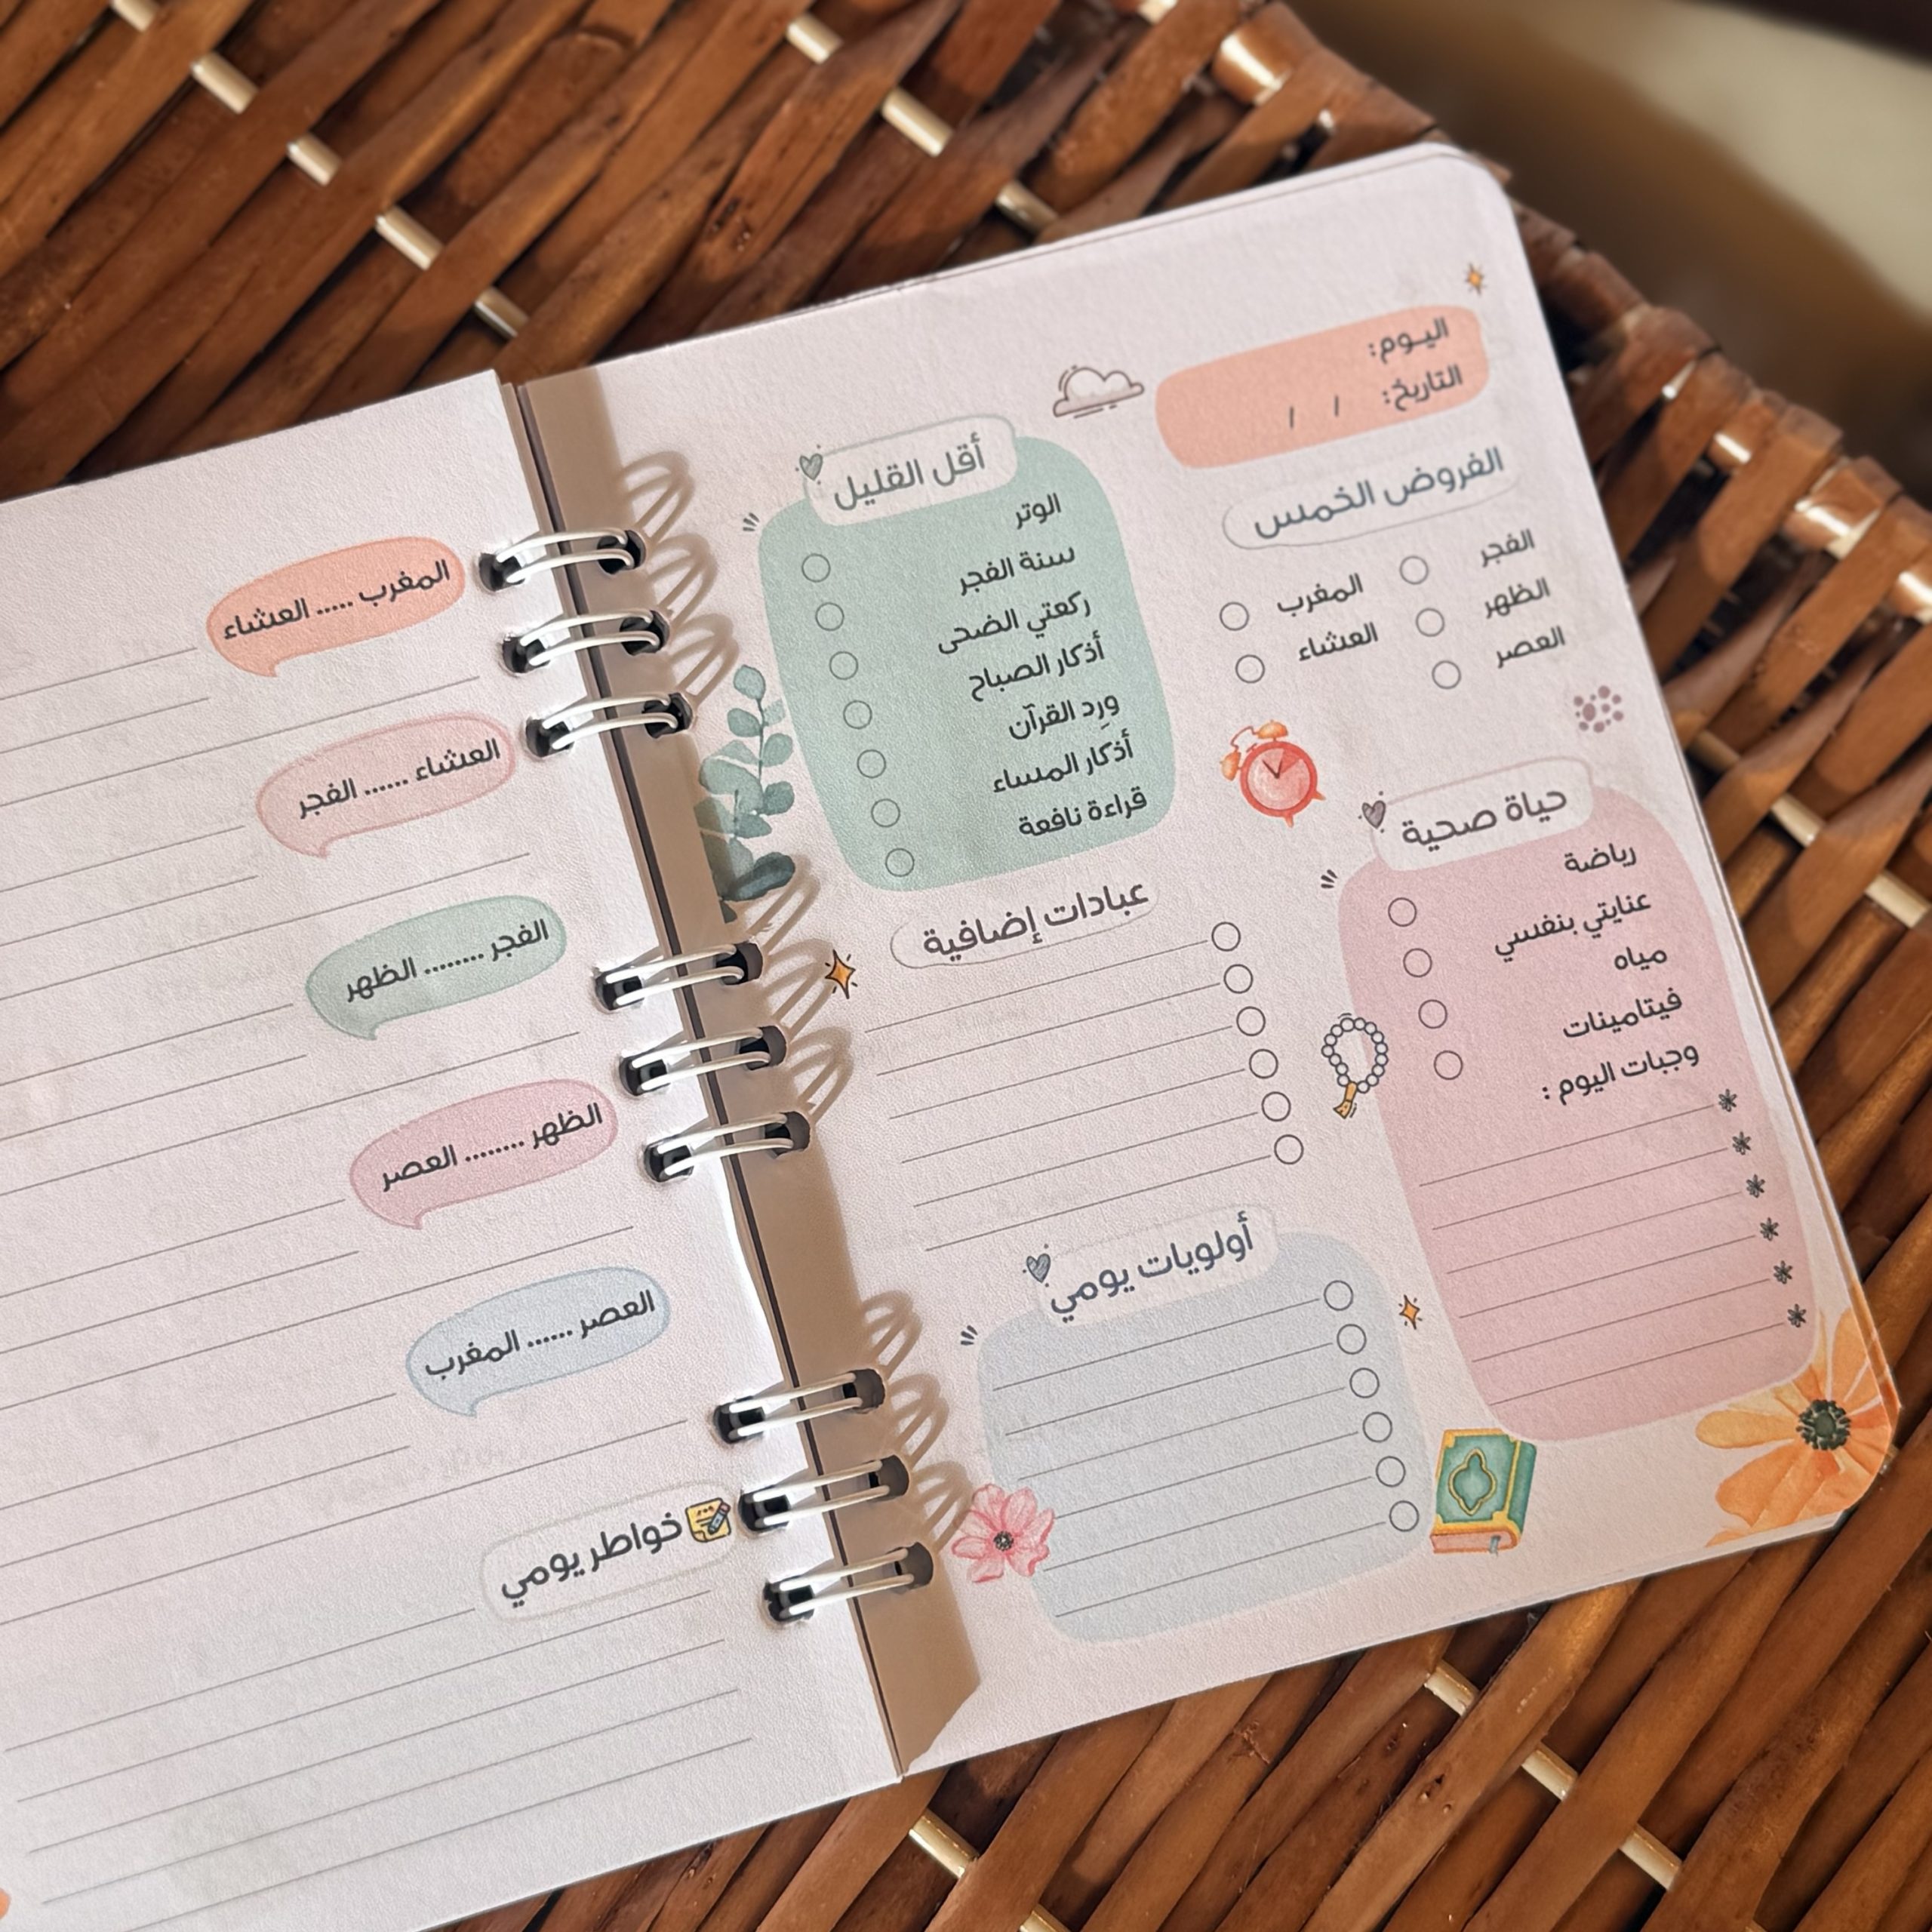 اليـوم:
التاريخ: / /
الفروض الخمس
الفجر
الظهر
العصر
المغرب
العشاء
حياة صحية
رياضة
عنايتي بنفسي
مياه
فيتامينات
وجبات اليوم :
أقل القليل
الوتر
سنة الفجر
ركعتي الضحى
أذكار الصباح
وِرد القرآن
أذكار المساء
قراءة نافعة
عبادات إضافية
أولويات يومي
المغرب ..... العشاء
العشاء ...... الفجر
الفجر ........ الظهر
الظهر ........ العصر
العصر ...... المغرب
خواطر يومي